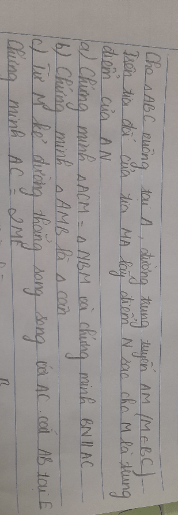 Cho △ABC vuông tại A, đường trung tuyến AM (M∈BC)
Trên tia đối của tia MA lấy điểm N sao cho M là trung
điểm của AN
a) Chứng minh △ACM = △NBM và chứng minh BN // AC
b) Chứng minh △AMB là △ cân
c) Từ M kẻ đường thẳng song song với AC cắt AB tại E
Chứng minh AC = 2ME
B